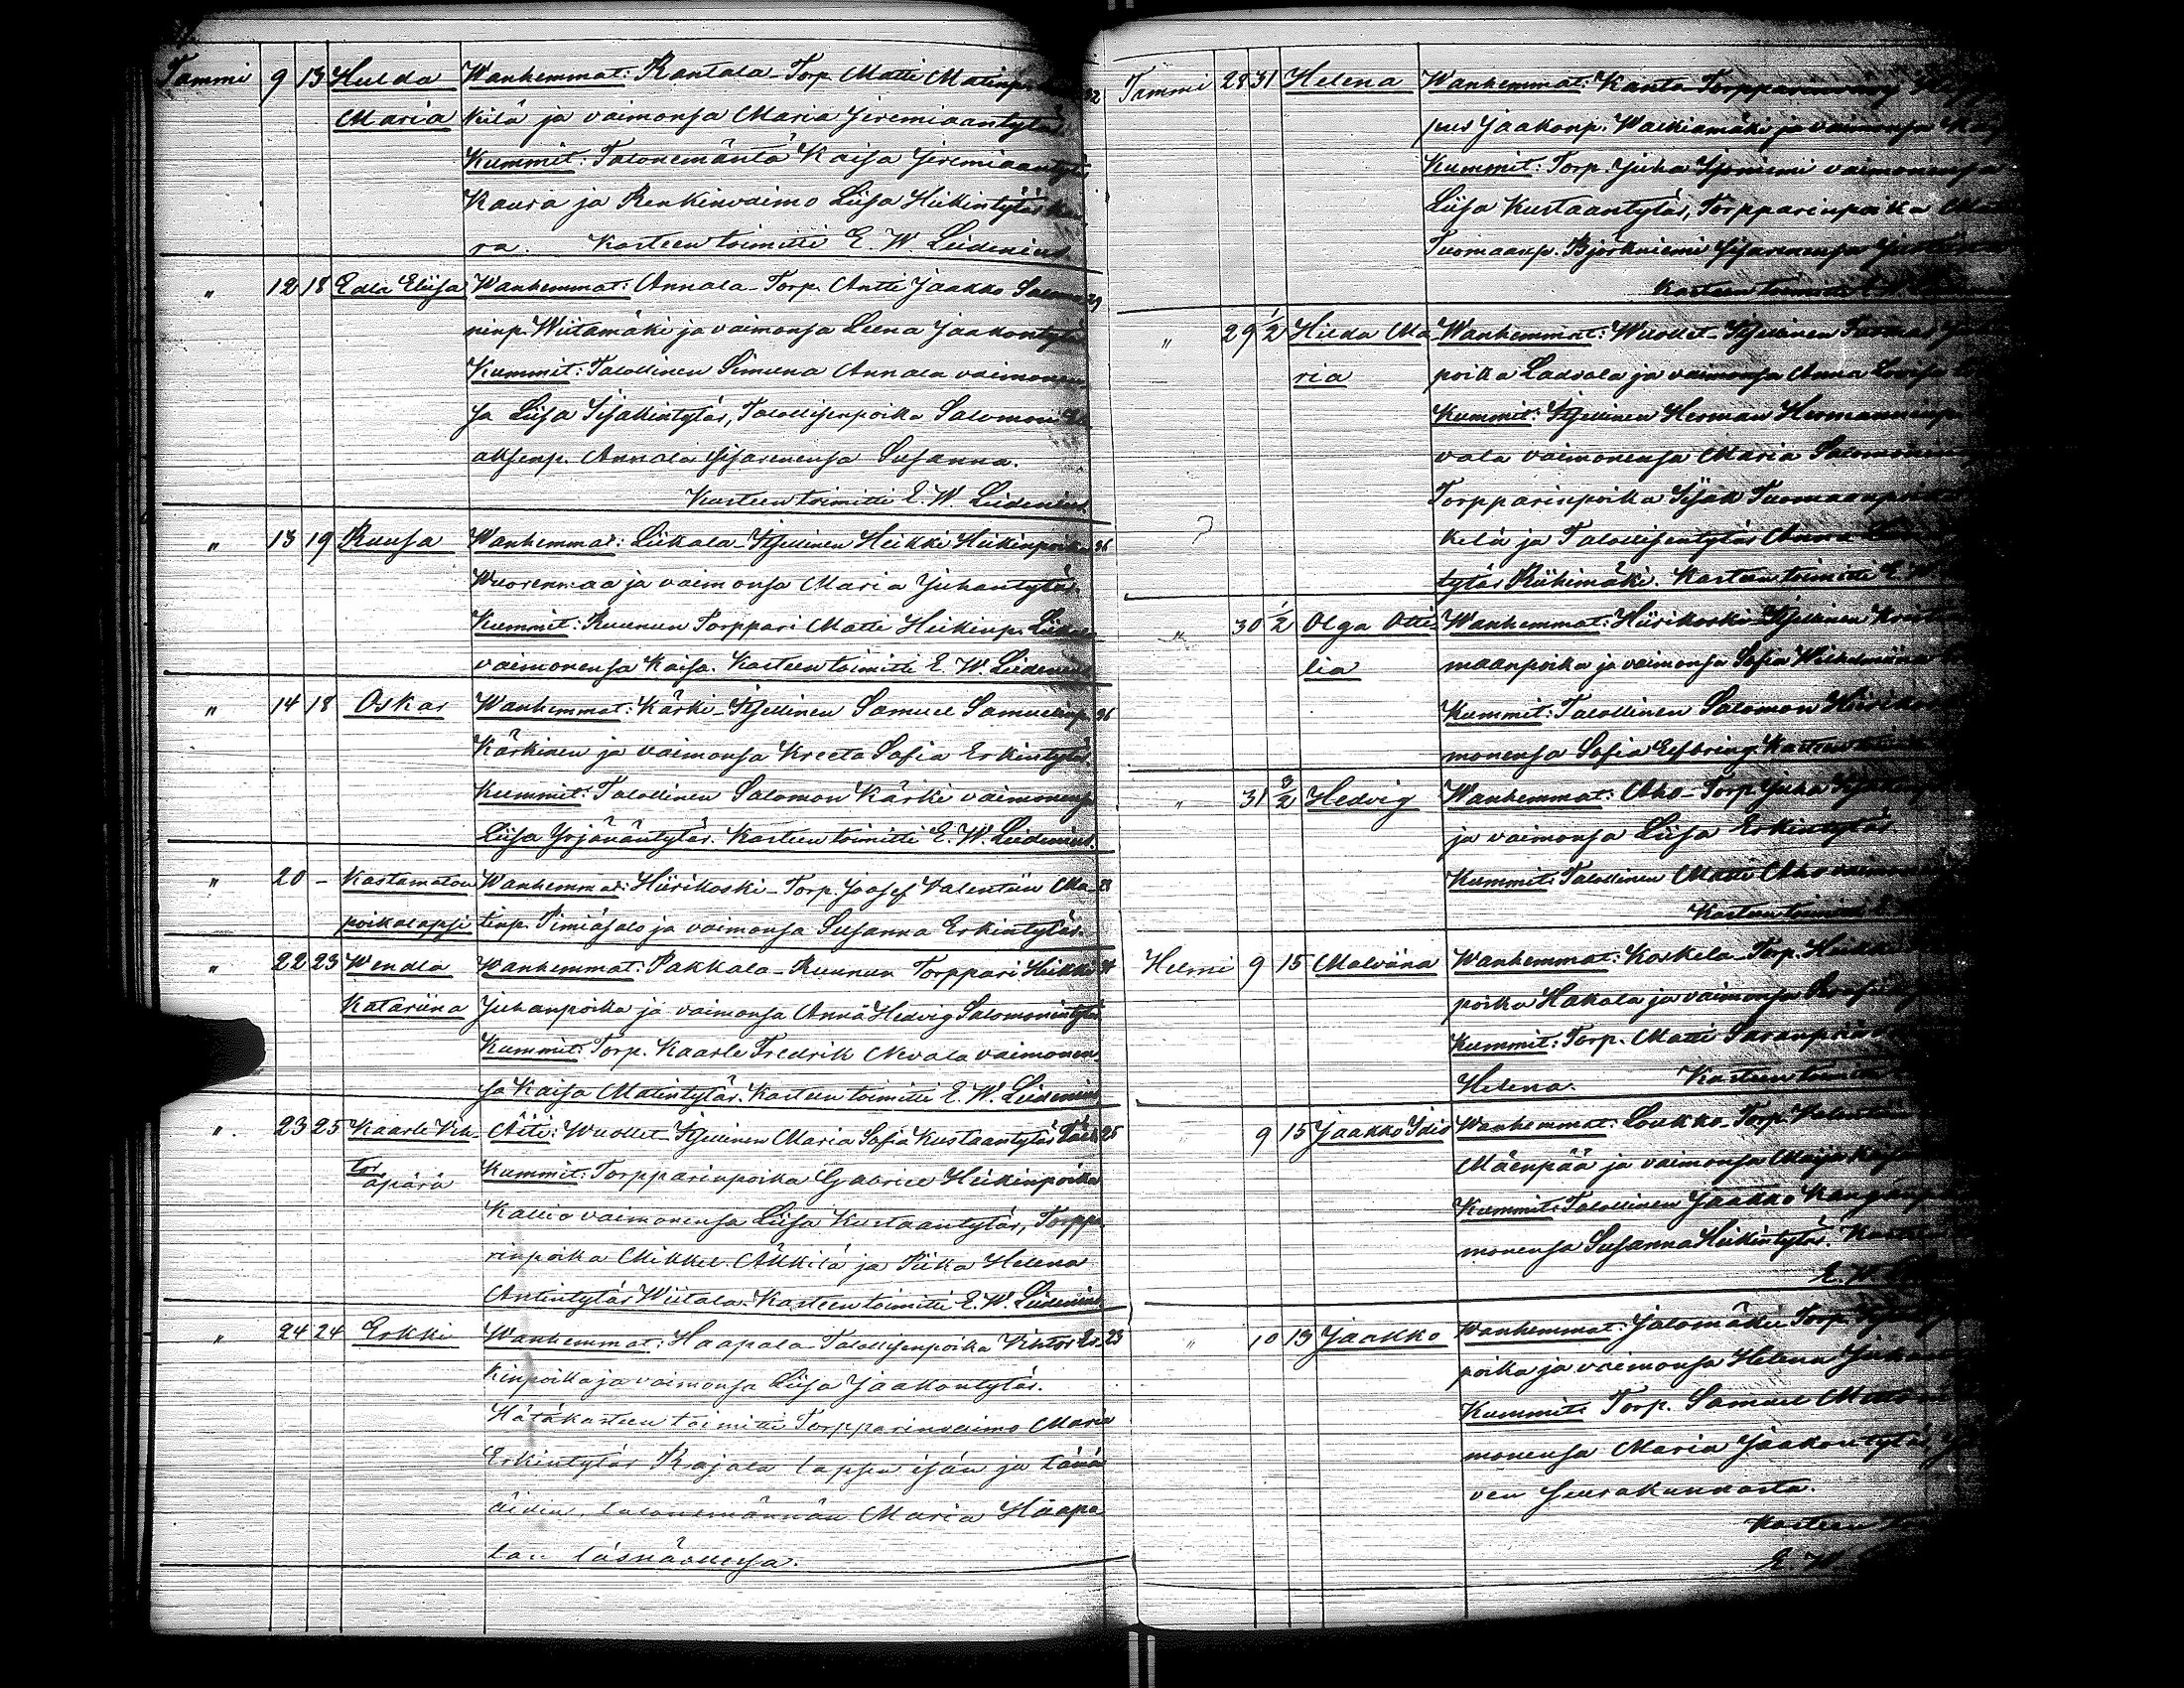 Tammi 9 13 Hulda Wanhemmat: Rantala-Torp. Matti Matinp. 32
Maria Kilä ja vaimonsa Maria Jeremiaantytär.
Kummit: Talonemäntä Kaisa Jeremiaantytär
Kaura ja Renkinvaimo Liisa Heikintytär Kau
ra. Kasteen toimitti E. W. Leidenius.
" 12 18 Eda Eliisa Wanhemmat: Annala-Torp. Antti Jaakko Salomo 29
ninp. Wiitamäki ja vaimonsa Leena Jaakontytär
Kummit: Talollinen Simuna Annala vaimonen
sa Liisa Iisakintytär, Talollisenpoika Salomon
aksenp. Annala sisarenensa Susanna.
Kasteen toimitti E. W. Leidenius.
" 13 19 Ruusa Wanhemmat: Liikala-Itsellinen Heikki Heikinpoika 36
Wuorenmaa ja vaimonsa Maria Juhantytär.
Kummit: Ruunun Torppari Matti Heikinp. Liikala
vaimonensa Kaisa. Kasteen toimitti E. W. Leidenius
" 14 18 Oskar Wanhemmat: Kärki-Itsellinen Samuel Samuelinp. 36
Kärkinen ja vaimonsa Kreeta Sofia Erkintytär
Kummit: Talollinen Salomon Kärki vaimonensa
Liisa Yrjänäntytär. Kasteen toimitti E. W. Leidenius.
" 20 - Kastamaton Wanhemmat: Hiirikoski-Torp. Joosef Valentin Ma- 28
poikalapsi tinp. Pimiäsalo ja vaimonsa Susanna Erkintytär.
" 22 23 Wendla Wanhemmat: Pakkala-Ruunun Torppari Heikki
Katariina Juhanpoika ja vaimonsa Anna Hedvig Salomonintytär
Kummit: Torp. Kaarle Fredrik Nevala vaimonen
sa Kaisa Matintytär. Kasteen toimitti E. W. Leidenius
" 23 25 Kaarle Vik Äiti: Wuollet-Itsellinen Maria Sofia Kustaantytär 25
tor Kummit: Torpparinpoika Gabriel Heikinpoika
äpärä
Kallio vaimonensa Liisa Kustaantytär, Torppa
rinpoika Mikkel Äkkilä ja Piika Helena
Antintytär Wiitala. Kasteen toimitti E. W. Leidenius
" 24 24 Erkki Wanhemmat: Haapala-Talollisenpoika Viktor Er- 23
kinpoika ja vaimonsa Liisa Jaakontytär.
Hätäkasteen toimitti Torpparinvaimo Maria
Erkintytär Rajala lapsen isän ja tämän
äidin, talonemännän Maria Haapa
lan läsnäollessa.
Tammi 28 31 Helena Wanhemmat: Kanta-Torpparinvävy
pus Jaakonp. Walkiamäki ja vaimonsa
Kummit: Torp. Juha Isoniemi vaimonensa
Liisa Kustaantytär, Torpparinpoika
Tuomaanp. Björkniemi sisarenensa
Kasteen toimitti E. W.
" 29 1/2 Hilda Ma- Wanhemmat: Wuollet-Itsellinen Tuomas
ria poika Laavala ja vaimonsa Anna Loviisa
Kummit: Itsellinen Herman Hermanninp.
vala vaimonensa Maria Salomonin
Torpparinpoika Iisak Tuomaanpoika
kelä ja Talollisentytär Anna
tytär Riihimäki. Kasteen toimitti E. W.
" 30 1/2 Olga Otti- Wanhemmat: Hiirikoski-Itsellinen
lia maanpoika ja vaimonsa Sofia Wilhelmiina
Kummit: Talollinen Salomon Hiirikoski
monensa Sofia Elfving. Kasteen
" 31 3/2 Hedvig Wanhemmat: Aho-Torp. Juha
ja vaimonsa Liisa Erkintytär
Kummit: Talollinen Matti Aho
Kasteen toimitti E.
Helmi 9 15 Malviina Wanhemmat: Koskela-Torp. Heikki
poika Hakala ja vaimonsa
Kummit: Torp. Matti
Helena. Kasteen toimitti
9 15 Jaakko Wanhemmat: Loukko-Torp. Valentin
Mäenpää ja vaimonsa Maija Kaisa
Kummit: Talollinen Jaakko
monensa Susanna Heikintytär.
E. W.
" 10 13 Jaakko Wanhemmat: Jalomäki-Torp.
poika ja vaimonsa Helena
Kummit: Torp. Samuel
monensa Maria Jaakontytär
ven seurakunnasta.
Kasteen
E. W.